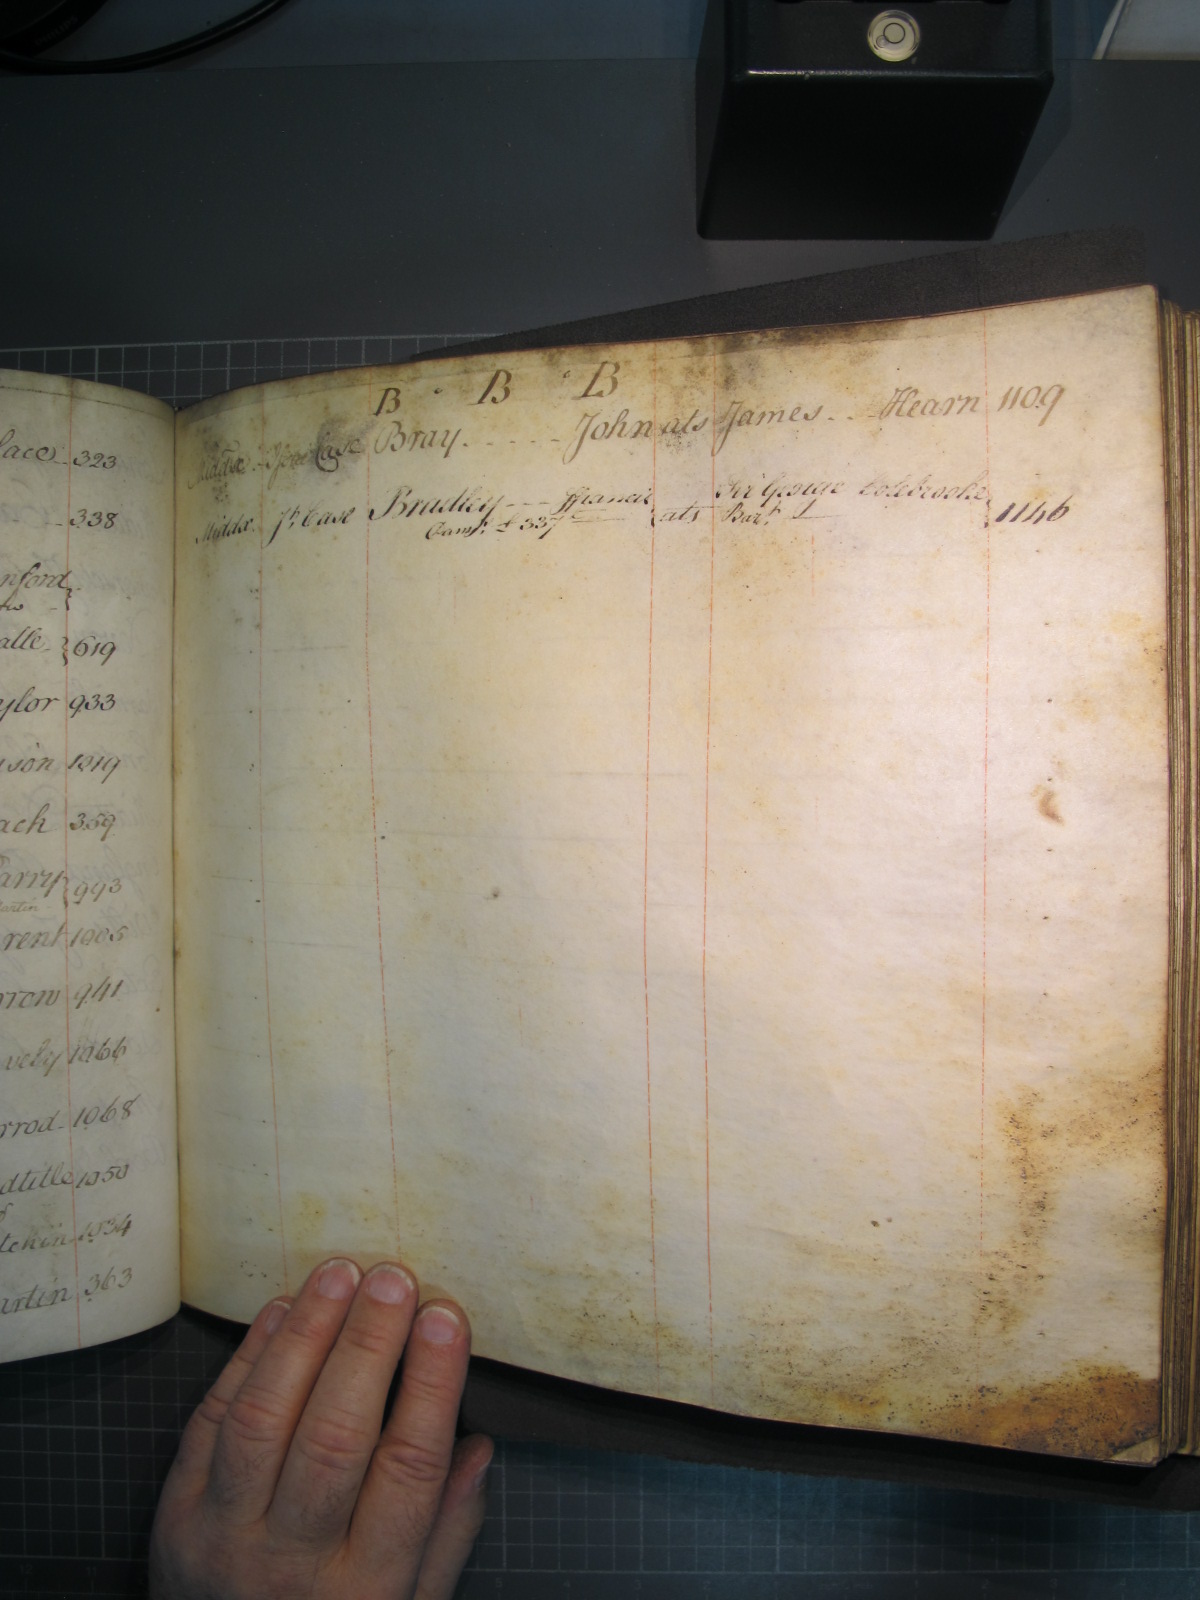 lace 323
338
nford
alle 619
ylor 933
ison 1219
ach 359
arry 993
artin
rent 1005
rrow 941
vely 1066
rrod 1068
dtitle 1050
tchin 1034
artin 363
B B B
Middx Case Bray John ats James Hearn 1109
Middx Case Bradley Francis ats Sir George Colebrooke 1146
£ 337 Bart